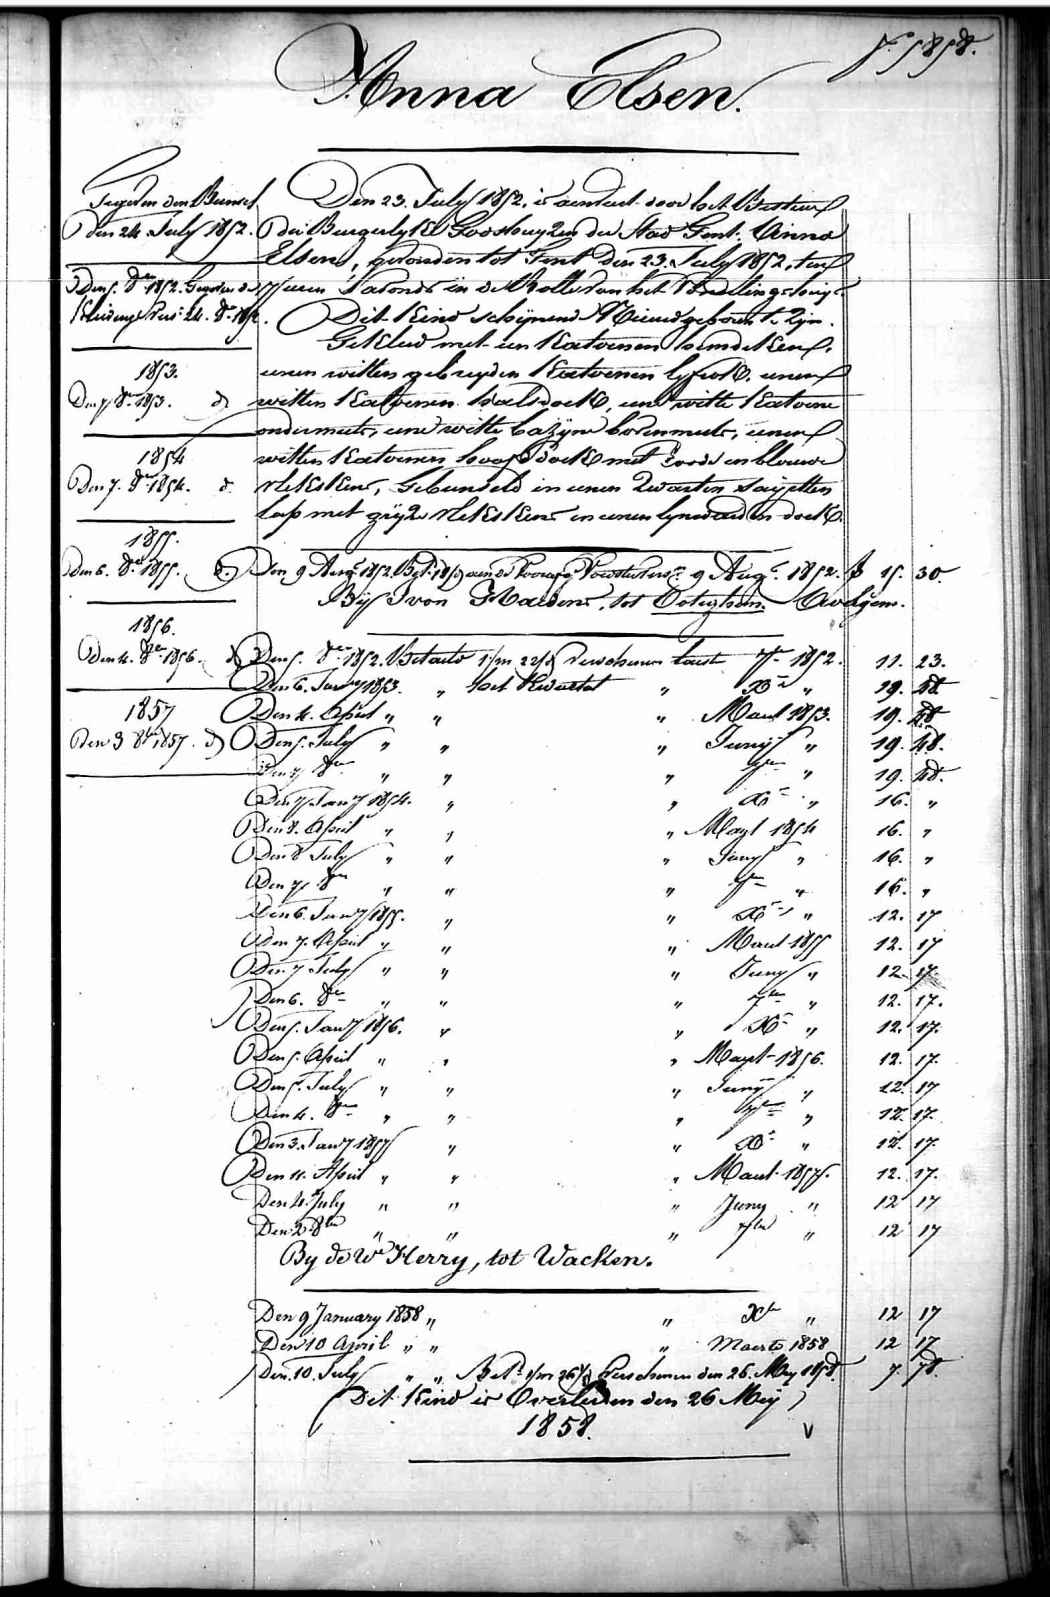 Anna Elsen.
Gegeven den Bunsel
den 24 July 1852.
Den 5. 8er 1852. Gegeven de
Kleeding Pres: 24. 8er 1852.
1853.
Den 7 8er 1853. d
1854
Den 7. 8er 1854. d.
1855.
Den 6. 8er 1855. d.
1856.
Den 4. 8er 1856. d
1857
Den 3 8er 1857. d
Den 23. July 1852, is aenveert door het Bestuer
der Burgerlyke Godshuyzen der Stad Gent. Anna
Elsen, gevonden tot Gent den 23. July 1852, ten
uren s'avonds in de Rolle van het Vondelingshuys.
Dit Kind schynend Nieuwgeboren te zyn.
Gekleed met een Katoenen hemdeken,
eenen witten gebreyden Katoenen lyfrok, eenen
witten Katoenen halsdoek, eene witte Katoene
ondermuts, eene witte bazyne bovenmuts, eenen
witten Katoenen hoofddoek met roode en blauwe
vlekskens, Gebunseld in eenen zwarten sayetten
lap met gryze vlekskens en eenen lynwaeden doek.
Den 9 Augt 1852. Bet: 9 Augt 1852. f 15. 30.
By Ivon Maedens, tot Ooteghem. Avelgem.
Den 5. 8er 1852. Betaeld verschenen laest 7er 1852. 11. 23.
Den 6. January 1853. " het Kwartael " Xer " 19. 48.
Den 4. April " " " Maert 1853. 19. 48
Den 5. July " " " Juny " 19. 48.
Den 7 8er " " " 7er " 19. 48.
Den 7 Jany 1854. " " Xer " 16. "
Den 8. April " " " Maert 1854 16. "
Den 8 July " " " Juny " 16. "
Den 7 8er " " " 7er " 16. "
Den 6. Jany 1855. " " Xer " 12. 17
Den 7. April " " " Maert 1855 12. 17
Den 7 July " " " Juny " 12. 17.
Den 6. 8er " " " 7er " 12. 17.
Den 5. Jany 1856. " " Xer " 12. 17.
Den 5. April " " " Maert 1856. 12. 17.
Den 5. July " " " Juny " 12. 17
Den 4. 8er " " " 7er " 12. 17.
Den 3. Jany 1857 " " Xer " 12. 17.
Den 4. April " " " Maert 1857. 12. 17.
Den 4. July " " " Juny " 12 17
Den 2 8ber " " " 7ber " 12 17
By de We Herry, tot Wacken.
Den 9 January 1858 " " Xber " 12 17
Den 10 April " " " Maert 1858 12 17
Den 10. July " " Bet: verschenen den 26. Mey 1858. 7. 78.
Dit Kind is Overleden den 26 Mey
1858.